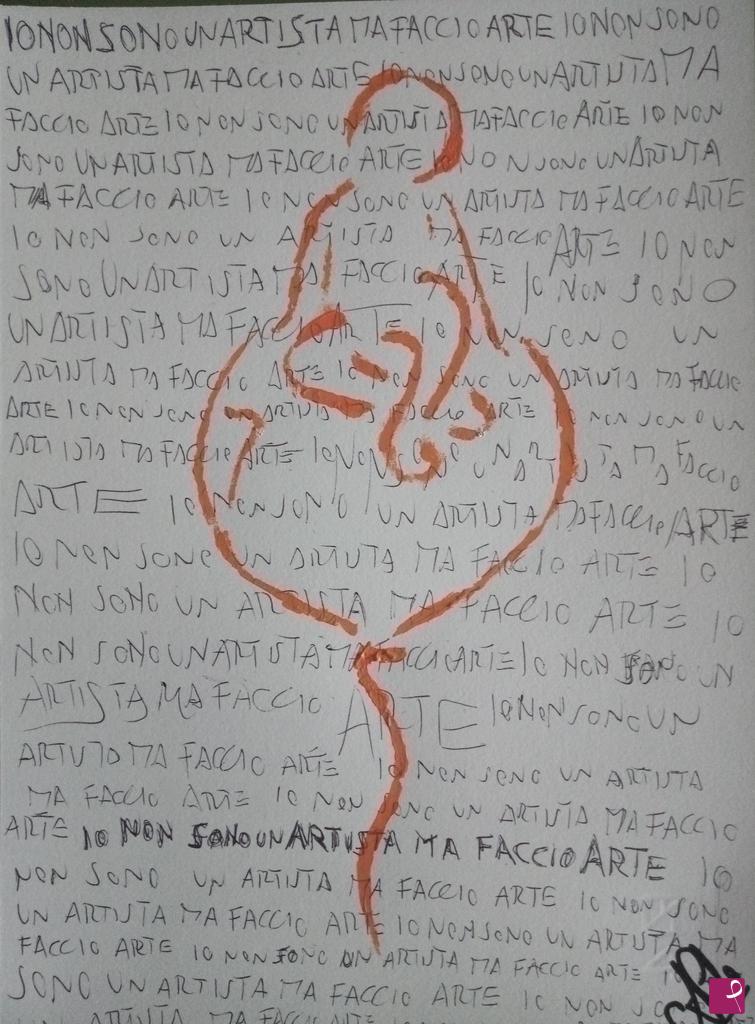 IO NON SONO UN ARTISTA MA FACCIO ARTE IO NON SONO
UN ARTISTA MA FACCIO ARTE IO NON SONO UN ARTISTA MA
FACCIO ARTE IO NON SONO UN ARTISTA MA FACCIO ARTE IO NON
SONO UN ARTISTA MA FACCIO ARTE IO NON SONO UN ARTISTA
MA FACCIO ARTE IO NON SONO UN ARTISTA MA FACCIO ARTE
IO NON SONO UN ARTISTA MA FACCIO ARTE IO NON
SONO UN ARTISTA MA FACCIO ARTE IO NON SONO
UN ARTISTA MA FACCIO ARTE IO NON SONO UN
ARTISTA MA FACCIO ARTE IO NON SONO UN ARTISTA MA FACCIO
ARTE IO NON SONO UN ARTISTA MA FACCIO ARTE IO NON SONO UN
ARTISTA MA FACCIO ARTE IO NON SONO UN ARTISTA MA FACCIO
ARTE IO NON SONO UN ARTISTA MA FACCIO ARTE
IO NON SONO UN ARTISTA MA FACCIO ARTE IO
NON SONO UN ARTISTA MA FACCIO ARTE IO
NON SONO UN ARTISTA MA FACCIO ARTE IO NON SONO UN
ARTISTA MA FACCIO ARTE IO NON SONO UN
ARTISTA MA FACCIO ARTE IO NON SONO UN ARTISTA
MA FACCIO ARTE IO NON SONO UN ARTISTA MA FACCIO
ARTE IO NON SONO UN ARTISTA MA FACCIO ARTE IO
NON SONO UN ARTISTA MA FACCIO ARTE IO NON SONO
UN ARTISTA MA FACCIO ARTE IO NON SONO UN ARTISTA MA
FACCIO ARTE IO NON SONO UN ARTISTA MA FACCIO ARTE IO
SONO UN ARTISTA MA FACCIO ARTE IO NON